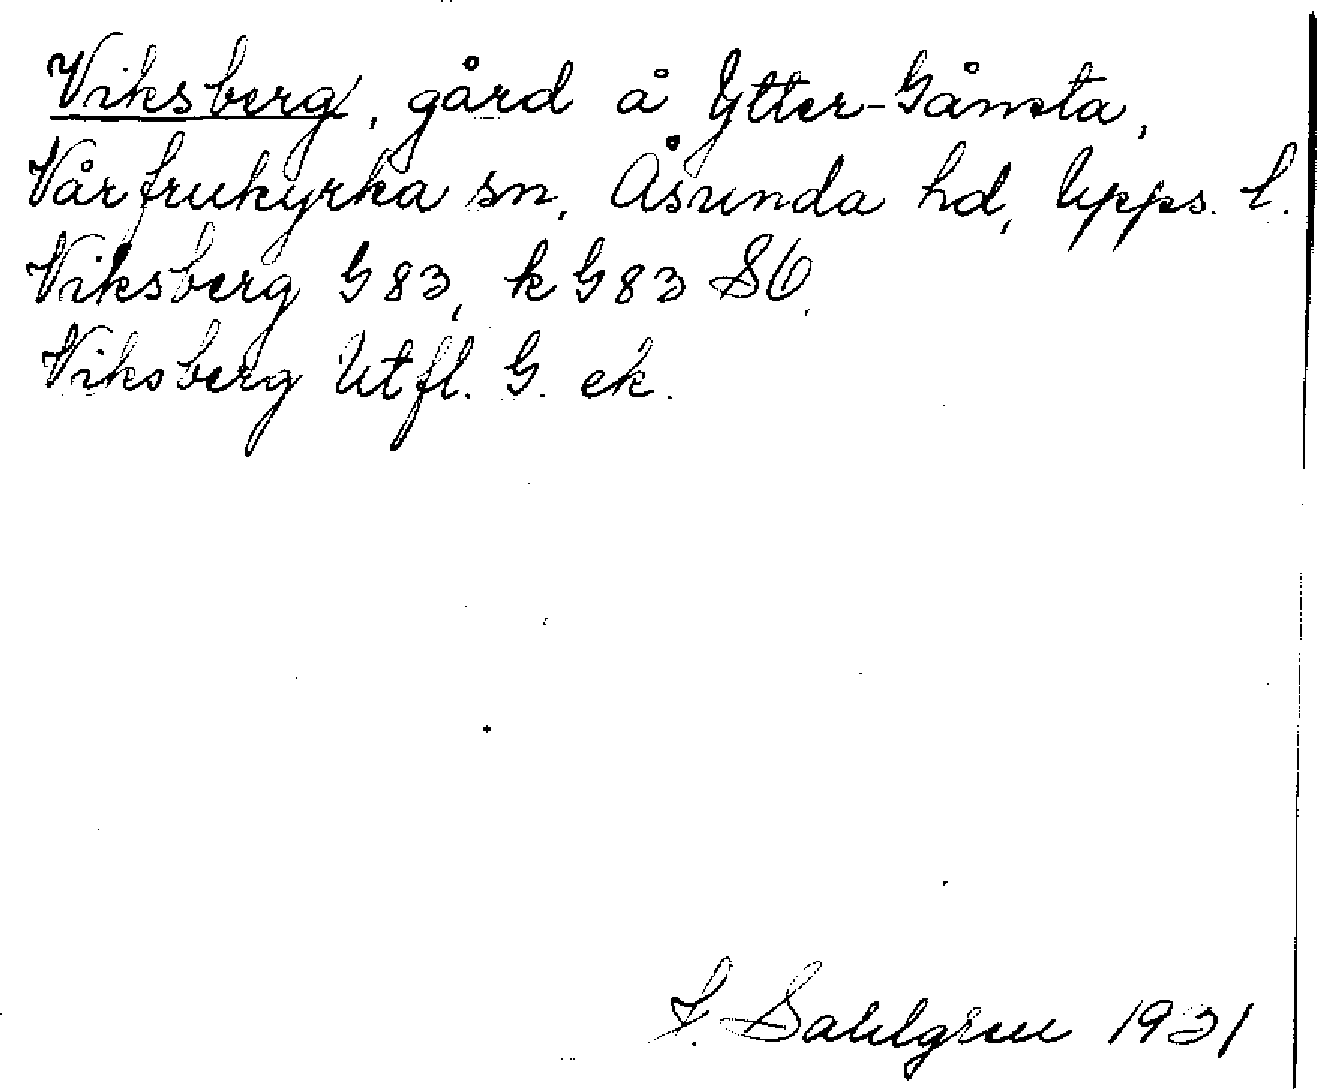 Viksberg, gård å Ytter-Gånsta,
Vårfrukyrka sn, Åsunda hd, Upps. l.
Viksberg G 83, k G 83 SO.
Viksberg Utfl. G. ek.
J. Sahlgren 1931